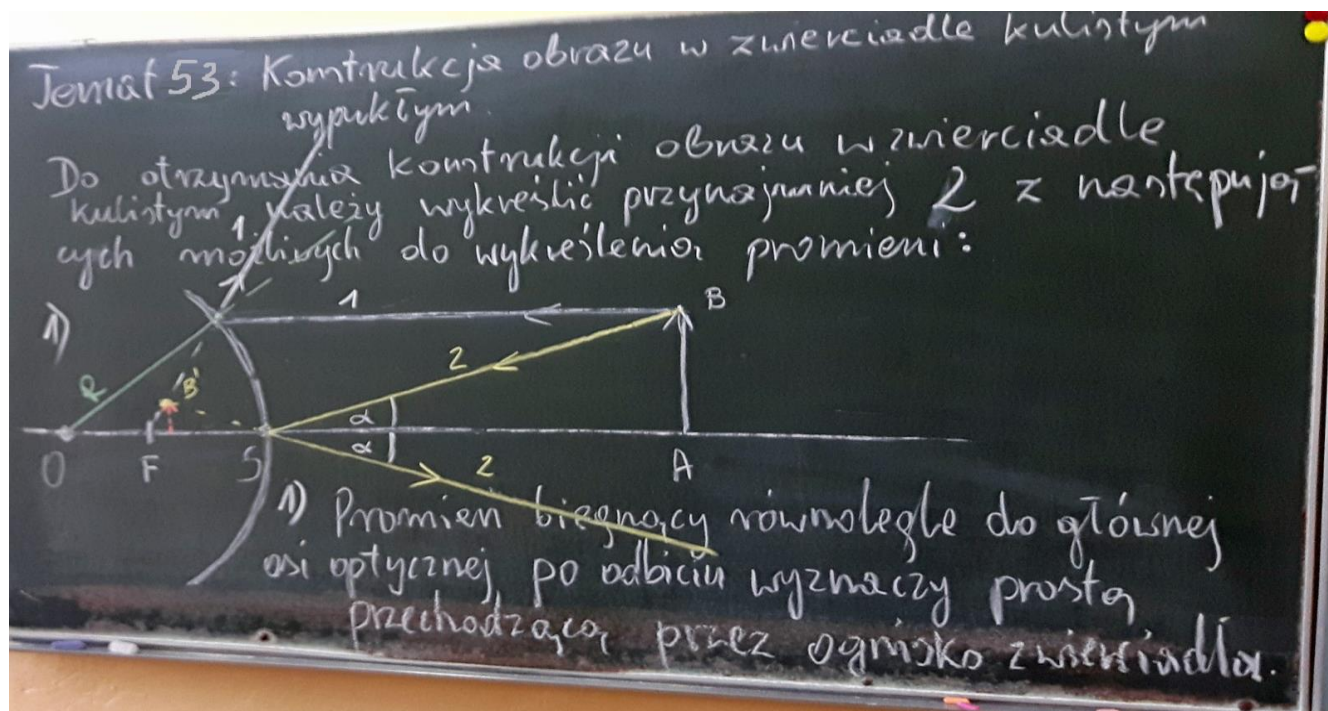 Temat 53: Konstrukcja obrazu w zwierciadle kulistym
wypukłym.
Do otrzymania konstrukcji obrazu w zwierciadle
kulistym należy wykreślić przynajmniej 2 z następują-
cych możliwych do wykreślenia promieni:
1)
1
1
B
R
B'
2
α
α
O
F
S
2
A
1) Promień biegnący równolegle do głównej
osi optycznej, po odbiciu wyznaczy prostą
przechodzącą przez ognisko zwierciadła.